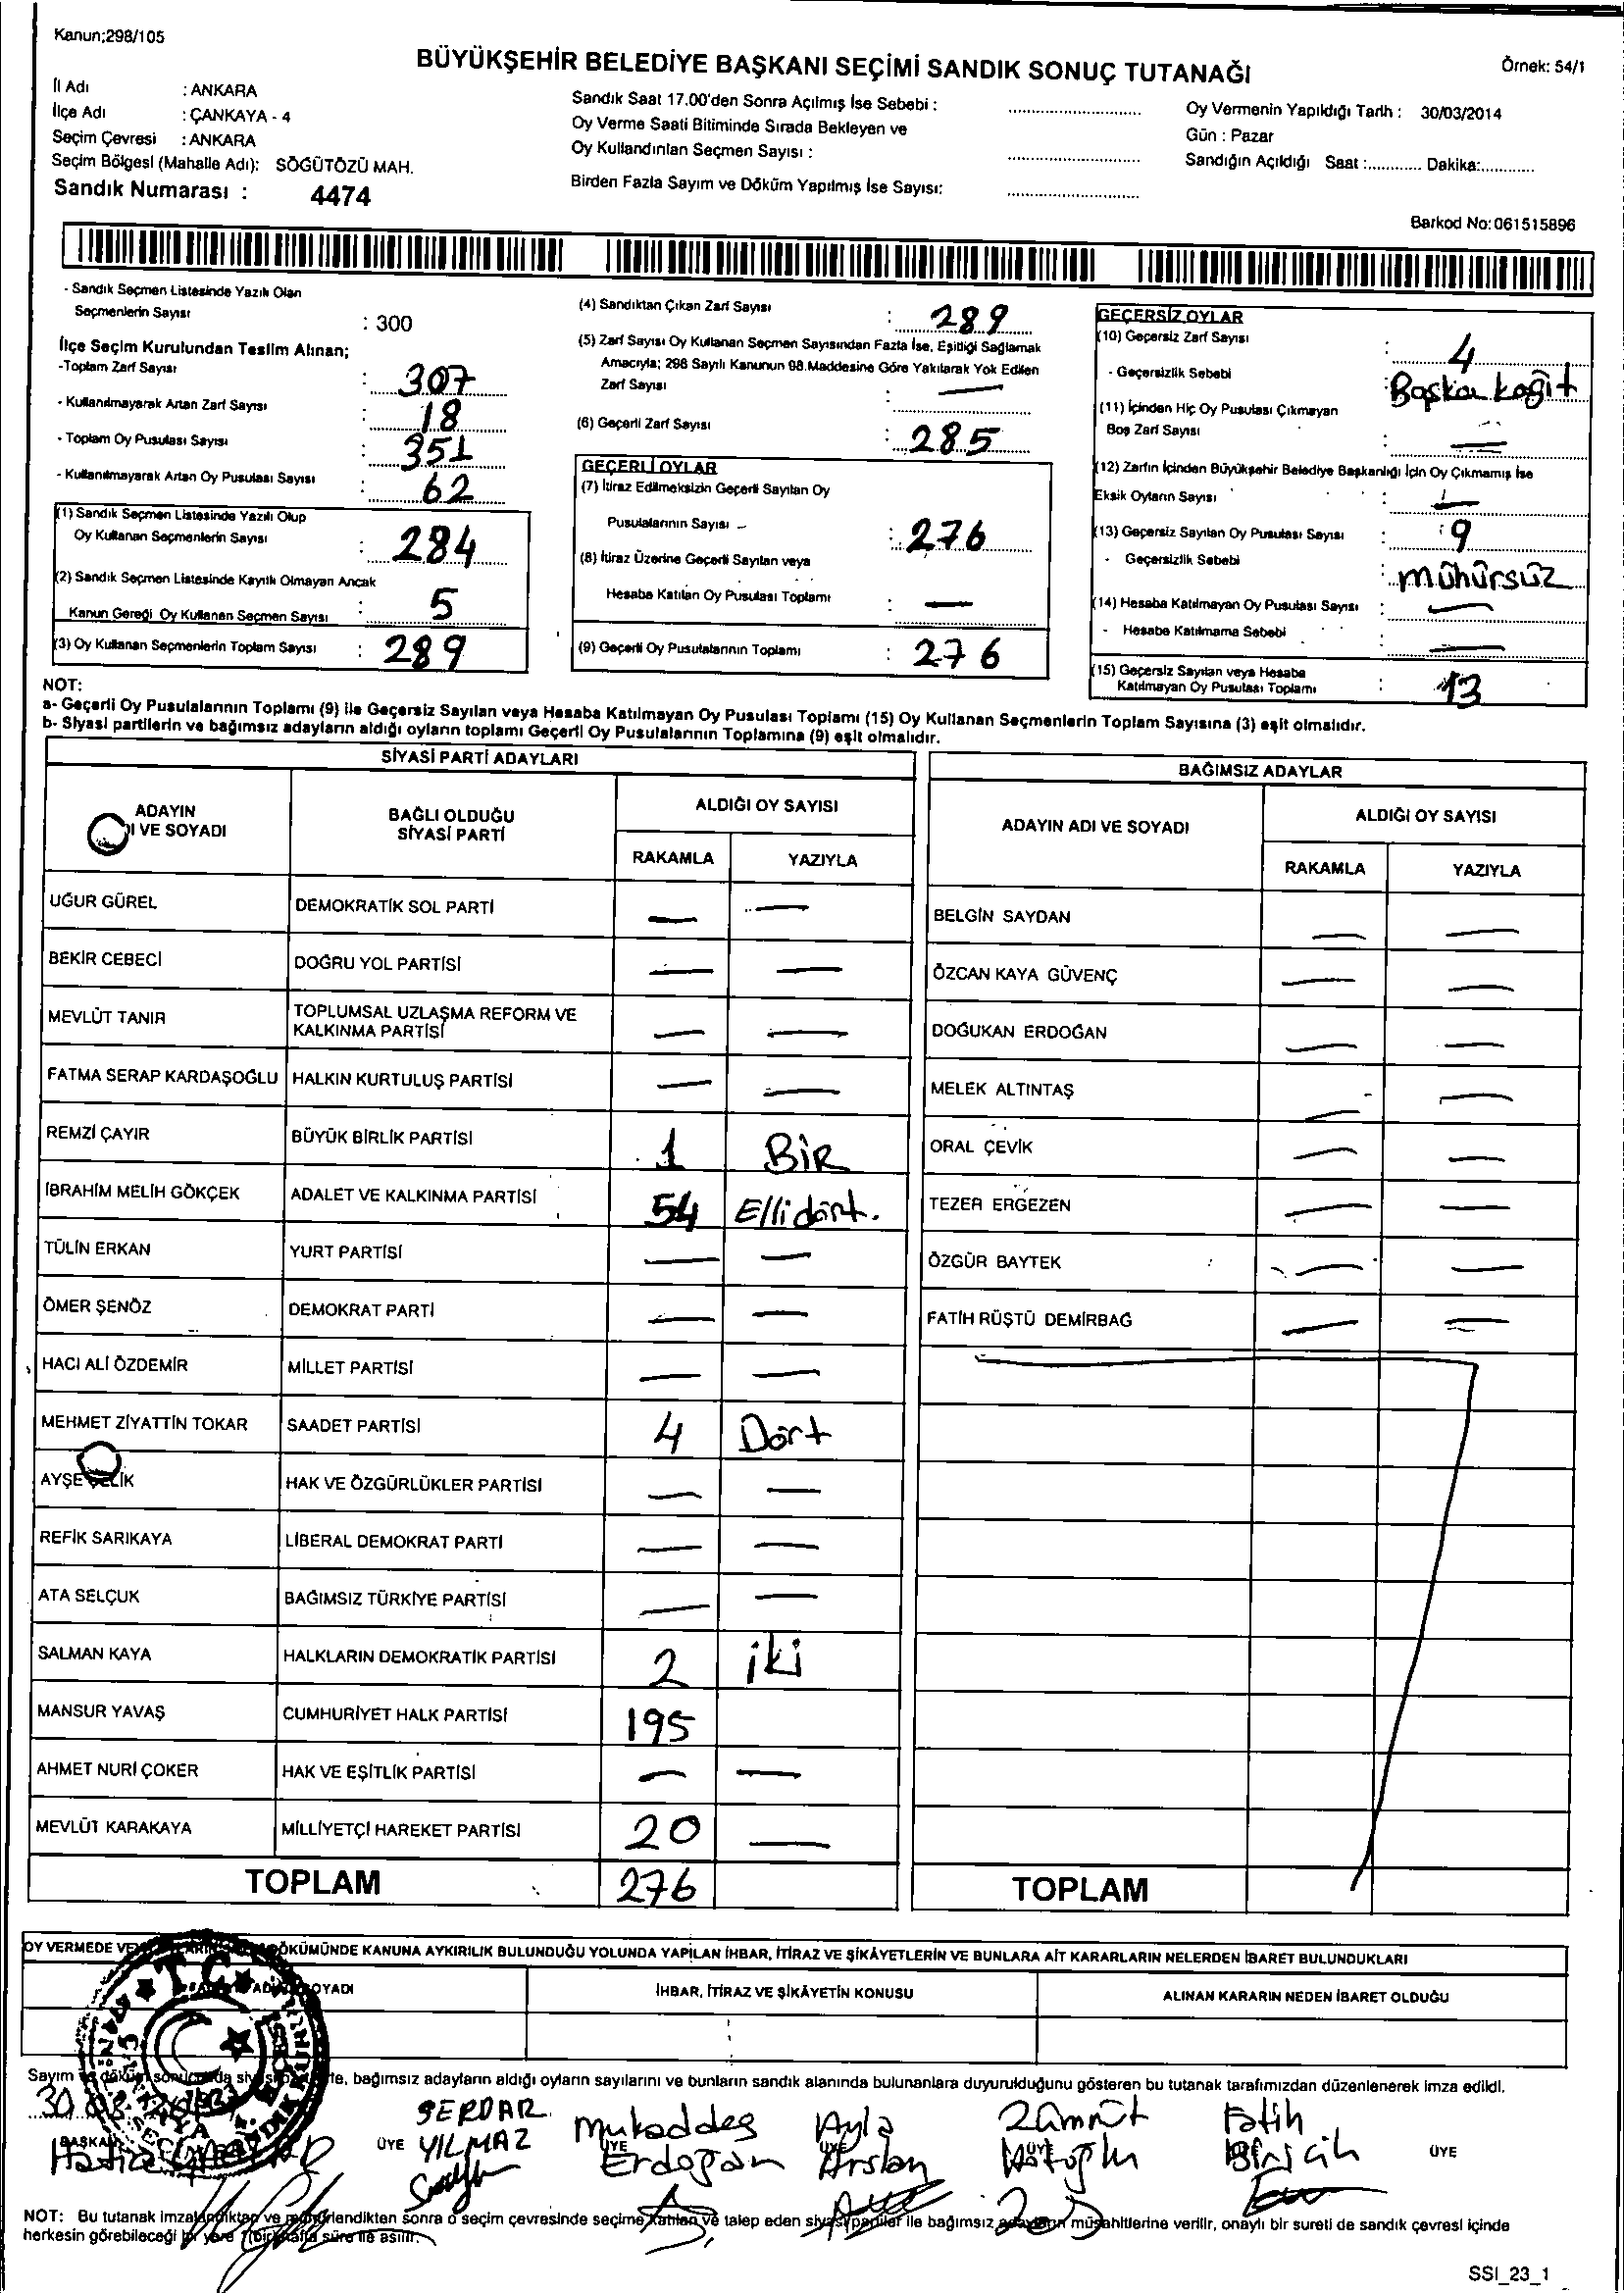 Kanun;298/105
BÜYÜKŞEHİR BELEDİYE BAŞKANI SEÇİMİ SANDIK SONUÇ TUTANAĞI
Örnek: 54/1
İl Adı : ANKARA
İlçe Adı : ÇANKAYA - 4
Seçim Çevresi : ANKARA
Seçim Bölgesi (Mahalle Adı): SÖĞÜTÖZÜ MAH.
Sandık Numarası : 4474
Sandık Saat 17.00'den Sonra Açılmış İse Sebebi :
Oy Verme Saati Bitiminde Sırada Bekleyen ve
Oy Kullandırılan Seçmen Sayısı :
Birden Fazla Sayım ve Döküm Yapılmış İse Sayısı:
Oy Vermenin Yapıldığı Tarih : 30/03/2014
Gün : Pazar
Sandığın Açıldığı Saat :............ Dakika:............
Barkod No:061515896
- Sandık Seçmen Listesinde Yazılı Olan
Seçmenlerin Sayısı : 300
İlçe Seçim Kurulundan Teslim Alınan;
-Toplam Zarf Sayısı : 307
- Kullanılmayarak Artan Zarf Sayısı : 18
- Toplam Oy Pusulası Sayısı : 351
- Kullanılmayarak Artan Oy Pusulası Sayısı : 62
(1) Sandık Seçmen Listesinde Yazılı Olup
Oy Kullanan Seçmenlerin Sayısı : 284
(2) Sandık Seçmen Listesinde Kayıtlı Olmayan Ancak
Kanun Gereği Oy Kullanan Seçmen Sayısı : 5
(3) Oy Kullanan Seçmenlerin Toplam Sayısı : 289
(4) Sandıktan Çıkan Zarf Sayısı : 289
(5) Zarf Sayısı Oy Kullanan Seçmen Sayısından Fazla İse, Eşitliği Sağlamak
Amacıyla; 298 Sayılı Kanunun 98.Maddesine Göre Yakılarak Yok Edilen
Zarf Sayısı : —
(6) Geçerli Zarf Sayısı : 285
GEÇERLİ OYLAR
(7) İtiraz Edilmeksizin Geçerli Sayılan Oy
Pusulalarının Sayısı : 276
(8) İtiraz Üzerine Geçerli Sayılan veya
Hesaba Katılan Oy Pusulası Toplamı : —
(9) Geçerli Oy Pusulalarının Toplamı : 276
GEÇERSİZ OYLAR
(10) Geçersiz Zarf Sayısı : 4
- Geçersizlik Sebebi : Başka kağıt
(11) İçinden Hiç Oy Pusulası Çıkmayan
Boş Zarf Sayısı : —
(12) Zarfın İçinden Büyükşehir Belediye Başkanlığı İçin Oy Çıkmamış İse
Eksik Oyların Sayısı : —
(13) Geçersiz Sayılan Oy Pusulası Sayısı : 9
- Geçersizlik Sebebi : mühürsüz
(14) Hesaba Katılmayan Oy Pusulası Sayısı : —
- Hesaba Katılmama Sebebi : —
(15) Geçersiz Sayılan veya Hesaba
Katılmayan Oy Pusulası Toplamı : 13
NOT:
a- Geçerli Oy Pusulalarının Toplamı (9) ile Geçersiz Sayılan veya Hesaba Katılmayan Oy Pusulası Toplamı (15) Oy Kullanan Seçmenlerin Toplam Sayısına (3) eşit olmalıdır.
b- Siyasi partilerin ve bağımsız adayların aldığı oyların toplamı Geçerli Oy Pusulalarının Toplamına (9) eşit olmalıdır.
SİYASİ PARTİ ADAYLARI
ADAYIN
I VE SOYADI
BAĞLI OLDUĞU
SİYASİ PARTİ
ALDIĞI OY SAYISI
RAKAMLA YAZIYLA
UĞUR GÜREL DEMOKRATİK SOL PARTİ — —
BEKİR CEBECİ DOĞRU YOL PARTİSİ — —
MEVLÜT TANIR TOPLUMSAL UZLAŞMA REFORM VE
KALKINMA PARTİSİ — —
FATMA SERAP KARDAŞOĞLU HALKIN KURTULUŞ PARTİSİ — —
REMZİ ÇAYIR BÜYÜK BİRLİK PARTİSİ 1 BİR
İBRAHİM MELİH GÖKÇEK ADALET VE KALKINMA PARTİSİ 54 Ellidört.
TÜLİN ERKAN YURT PARTİSİ — —
ÖMER ŞENÖZ DEMOKRAT PARTİ — —
HACI ALİ ÖZDEMİR MİLLET PARTİSİ — —
MEHMET ZİYATTİN TOKAR SAADET PARTİSİ 4 Dört
AYŞE ÇELİK HAK VE ÖZGÜRLÜKLER PARTİSİ — —
REFİK SARIKAYA LİBERAL DEMOKRAT PARTİ — —
ATA SELÇUK BAĞIMSIZ TÜRKİYE PARTİSİ — —
SALMAN KAYA HALKLARIN DEMOKRATİK PARTİSİ 2 iki
MANSUR YAVAŞ CUMHURİYET HALK PARTİSİ 195
AHMET NURİ ÇOKER HAK VE EŞİTLİK PARTİSİ — —
MEVLÜT KARAKAYA MİLLİYETÇİ HAREKET PARTİSİ 20 —
TOPLAM 276
BAĞIMSIZ ADAYLAR
ADAYIN ADI VE SOYADI
ALDIĞI OY SAYISI
RAKAMLA YAZIYLA
BELGİN SAYDAN — —
ÖZCAN KAYA GÜVENÇ — —
DOĞUKAN ERDOĞAN — —
MELEK ALTINTAŞ — —
ORAL ÇEVİK — —
TEZER ERGEZEN — —
ÖZGÜR BAYTEK — —
FATİH RÜŞTÜ DEMİRBAĞ — —
TOPLAM
OY VERMEDE VE DÖKÜMÜNDE KANUNA AYKIRILIK BULUNDUĞU YOLUNDA YAPILAN İHBAR, İTİRAZ VE ŞİKÂYETLERİN VE BUNLARA AİT KARARLARIN NELERDEN İBARET BULUNDUKLARI
SOYADI
İHBAR, İTİRAZ VE ŞİKÂYETİN KONUSU
ALINAN KARARIN NEDEN İBARET OLDUĞU
Sayım bağımsız adayların aldığı oyların sayılarını ve bunların sandık alanında bulunanlara duyurulduğunu gösteren bu tutanak tarafımızdan düzenlenerek imza edildi.
BAŞKAN Hatice
ÜYE SERDAR YILMAZ
ÜYE Mukaddes Erdoğan
ÜYE Ayla Arslan
ÜYE Zümrüt
Fatih
ÜYE
NOT: Bu tutanak ve sonra o seçim çevresinde seçime katılan ve talep eden siyasi partiler ile bağımsız adayların müşahitlerine verilir, onaylı bir sureti de sandık çevresi içinde
herkesin görebileceği bir yere 1(bir)hafta süre ile asılır.
SSI_23_1